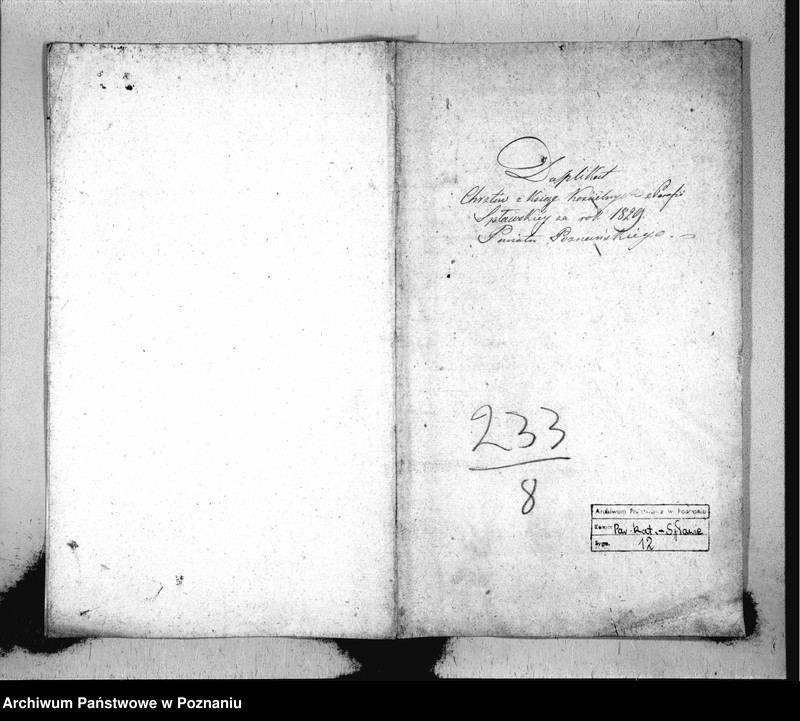 Duplikat
Chrztów z Ksiąg Kościelnych z Parafii
Spławskiey za rok 1829
Powiatu Poznańskiego.
233
8
Archiwum Państwowe w Poznaniu
Par. kat. - Spławie
Sygn. 12
Archiwum Państwowe w Poznaniu